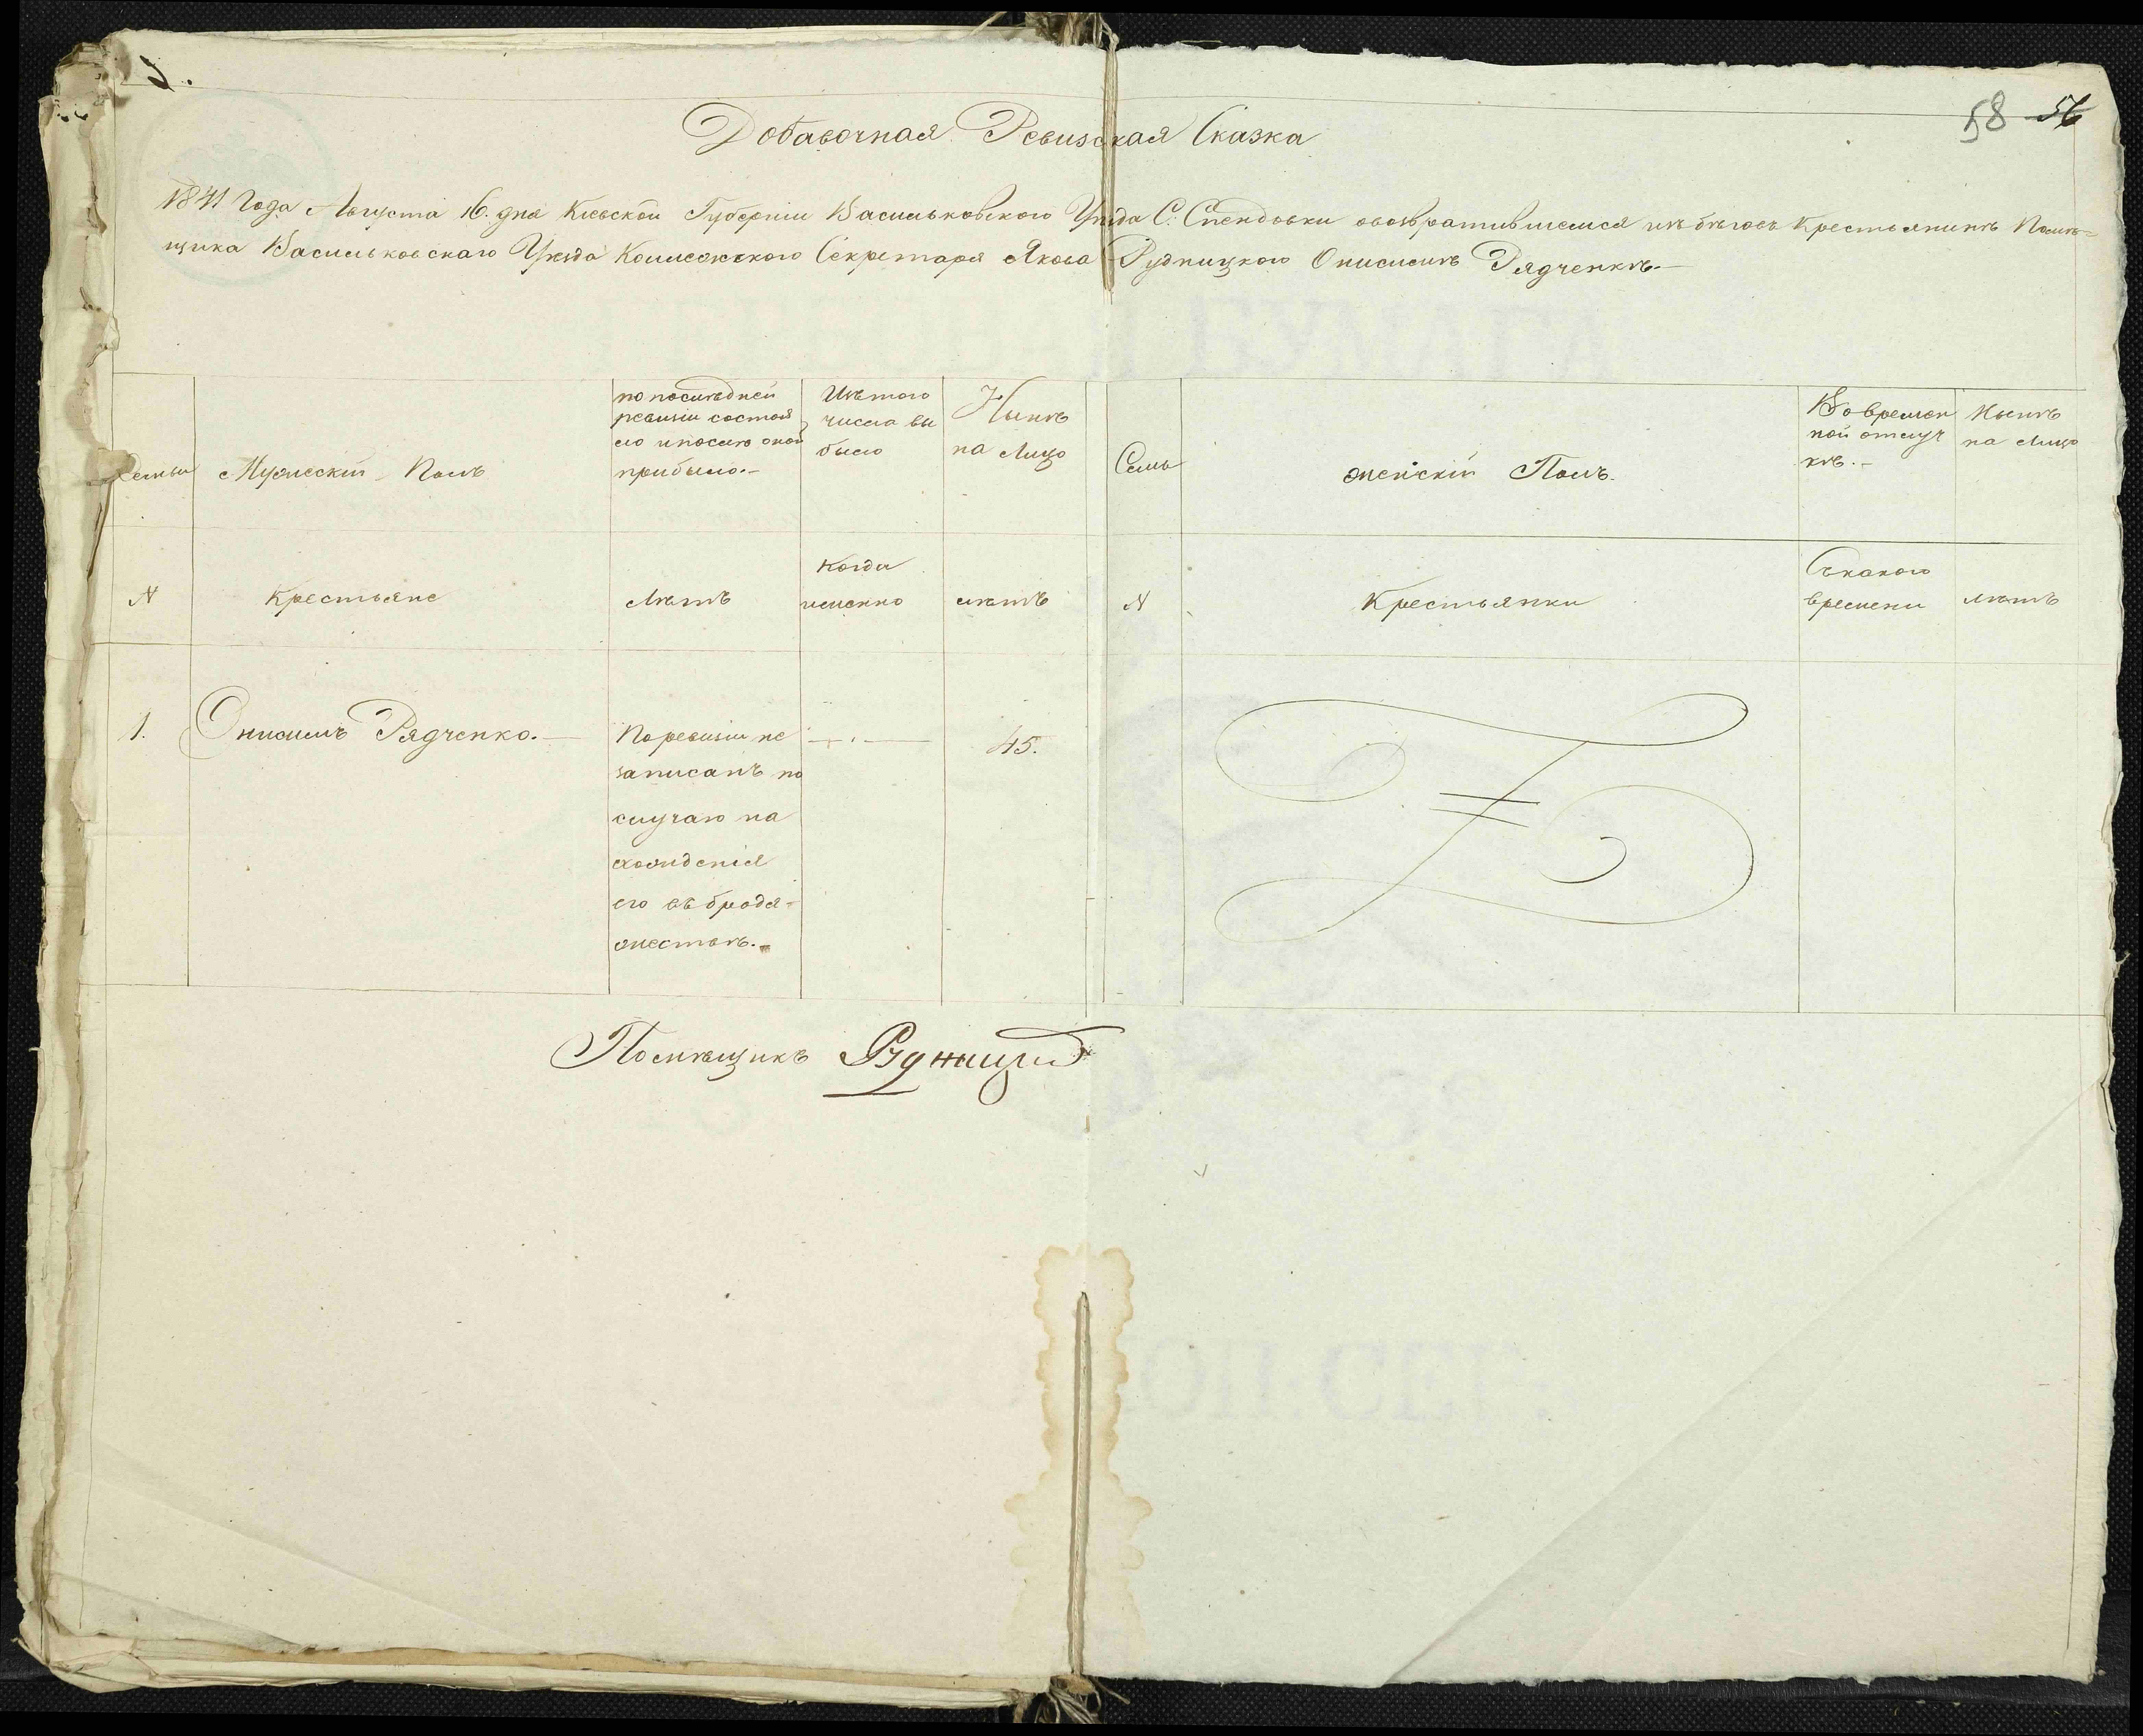 58 56
Добавочная Ревизская Сказка
1841 Года Августа 16. дня Киевской Губернии Васильковского Уѣзда С. Спендовки овозвратившемся изъ бѣговъ Крестьянинѣ Помѣ=
щика Васильковскаго Уѣзда Коллежского Секретаря Якова Рудницкого Онисимѣ Рядченкѣ.—
Семьи
Мужескій Полъ
по послѣдней
ревизіи состоя
ло и послѣ оной
прибыло.—
Изъ того
числа вы
было
Нынѣ
на Лицо
Семьи
женскій Полъ.
Во времен
ной отлуч
кѣ.—
Нынѣ
на Лицо
N
Крестьяне
Лѣтъ
Когда
именно
лѣтъ
N
Крестьянки
Съ какого
времени
лѣтъ
1.
Онисимъ Рядченко.—
По ревизіи не
записанъ по
случаю на
хождения
его въ бродя=
жествѣ.
45.
Помѣщикъ Рудницкій